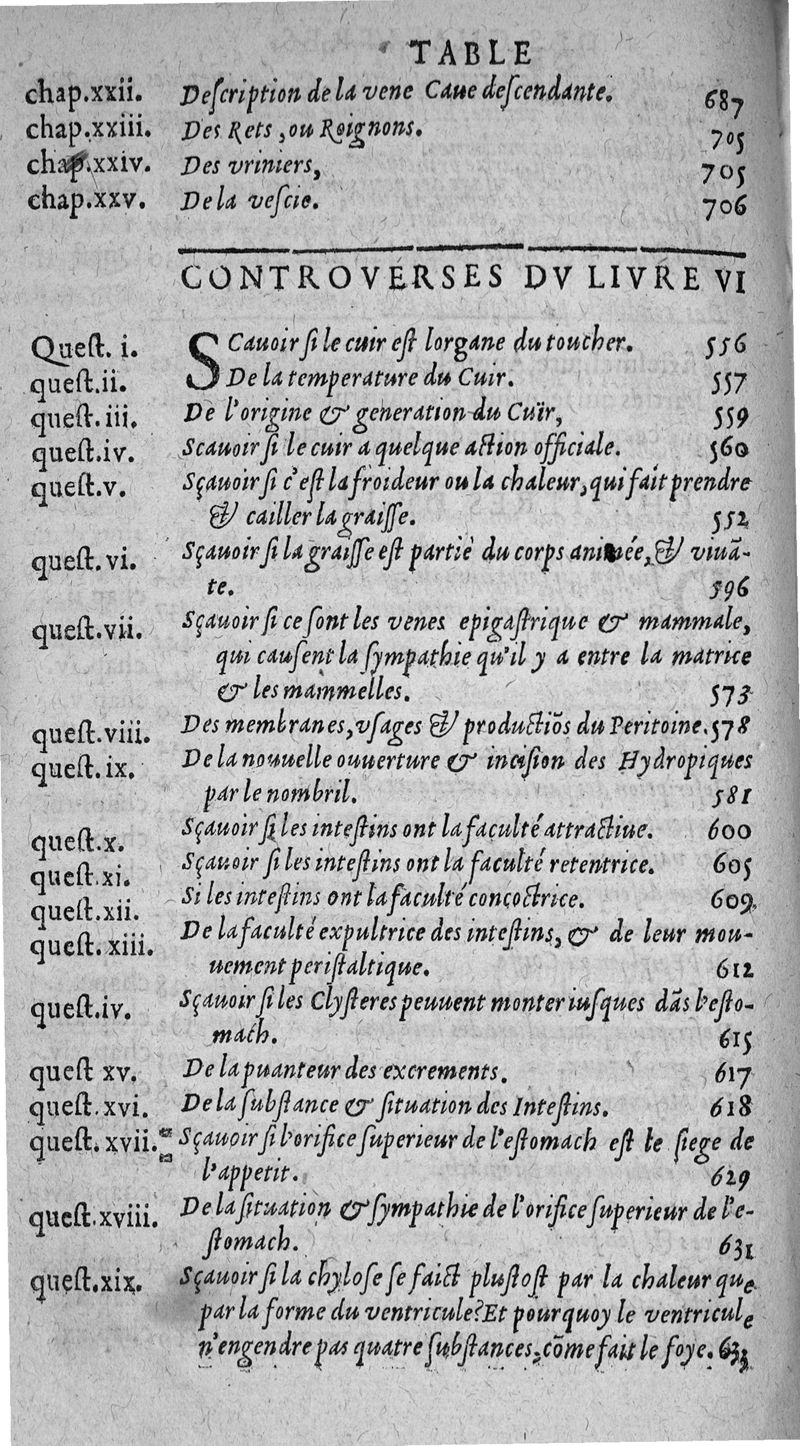 TABLE
chap.xxii. Deſcription de la vene Caue deſcendante. 687
chap.xxiii. Des Rets, ou Roignons. 705
chap.xxiv. Des vriniers, 705
chap.xxv. De la veſcie. 706
CONTROVERSES DV LIVRE VI
Queſt. i. SCauoir ſi le cuir eſt lorgane du toucher. 556
queſt.ii. De la temperature du Cuir. 557
queſt.iii. De l'origine & generation du Cuïr, 559
queſt.iv. Scauoir ſi le cuir a quelque action officiale. 560
queſt.v. Sçauoir ſi c'eſt la froideur ou la chaleur, qui fait prendre
& cailler la graiſſe. 552
queſt.vi. Sçauoir ſi la graiſſe eſt partie du corps animée, & viuã-
te. 596
queſt.vii. Sçauoir ſi ce ſont les venes epigaſtrique & mammale,
qui cauſent la ſympathie qu'il y a entre la matrice
& les mammelles. 573
queſt.viii. Des membranes, vſages & productiõs du Peritoine. 578
queſt.ix. De la nouuelle ouuerture & inciſion des Hydropiques
par le nombril. 581
queſt.x. Sçauoir ſi les inteſtins ont la faculté attractiue. 600
queſt.xi. Sçauoir ſi les inteſtins ont la faculté retentrice. 605
queſt.xii. Si les inteſtins ont la faculté conçoctrice. 609
queſt.xiii. De la faculté expultrice des inteſtins, & de leur mou-
uement periſtaltique. 612
queſt.iv. Sçauoir ſi les Clyſteres peuuent monter iuſques dãs l'eſto-
mach. 615
queſt xv. De la puanteur des excrements. 617
queſt.xvi. De la ſubſtance & ſituation des Inteſtins. 618
queſt.xvii. Sçauoir ſi l'orifice ſuperieur de l'eſtomach eſt le ſiege de
l'appetit. 629
queſt.xviii. De la ſituation & ſympathie de l'orifice ſuperieur de l'e-
ſtomach. 631
queſt.xix. Sçauoir ſi la chyloſe ſe faict pluſtoſt par la chaleur que
par la forme du ventricule? Et pourquoy le ventricule
n'engendre pas quatre ſubſtances, cõme fait le foye. 633